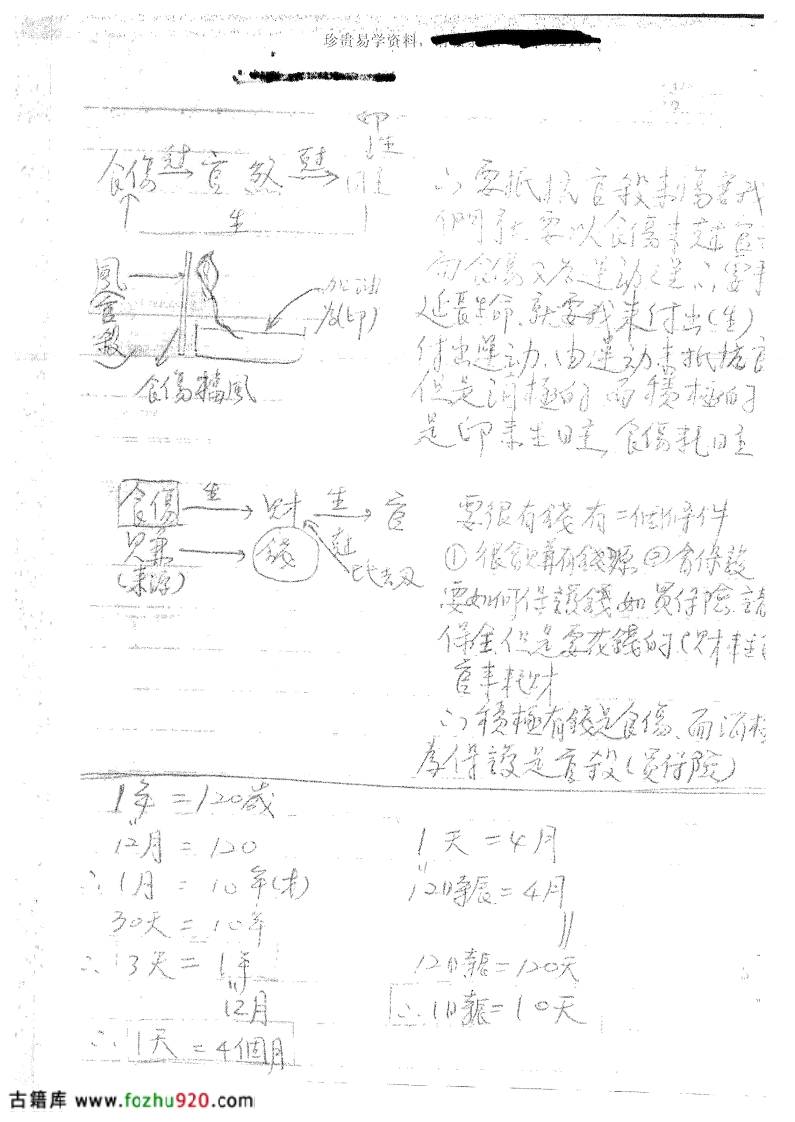 珍贵易学资料，
印
生
食傷 剋 官 殺 剋
生
∴要抵抗官殺來傷害我
們 要以食傷來剋官
而食傷又为運動之運∴要
延長生命,就要我來付出(生)
付出運動,由運動來抵抗官
但是消極的 而積極的
是印來生日主,食傷耗日主
風
官
殺
加油
为(印)
食傷擋風
食傷 生 財 生 官
兄弟 錢 劫
(來源) 比劫
要很有錢有二個條件
① 很會賺有錢源 ② 會保護
要如何保護錢如買保險,請
保全,但是要花錢的(財生
官來耗財
∴積極有錢是食傷,而消極
为保護是官殺(買保險)
1年=120歲
12月=120
∴1月=10年(才)
30天=10年
∴3天=1年
12月
∴1天=4個月
1天=4月
12時辰=4月
12時辰=120天
∴1時辰=10天
古籍库 www.fozhu920.com